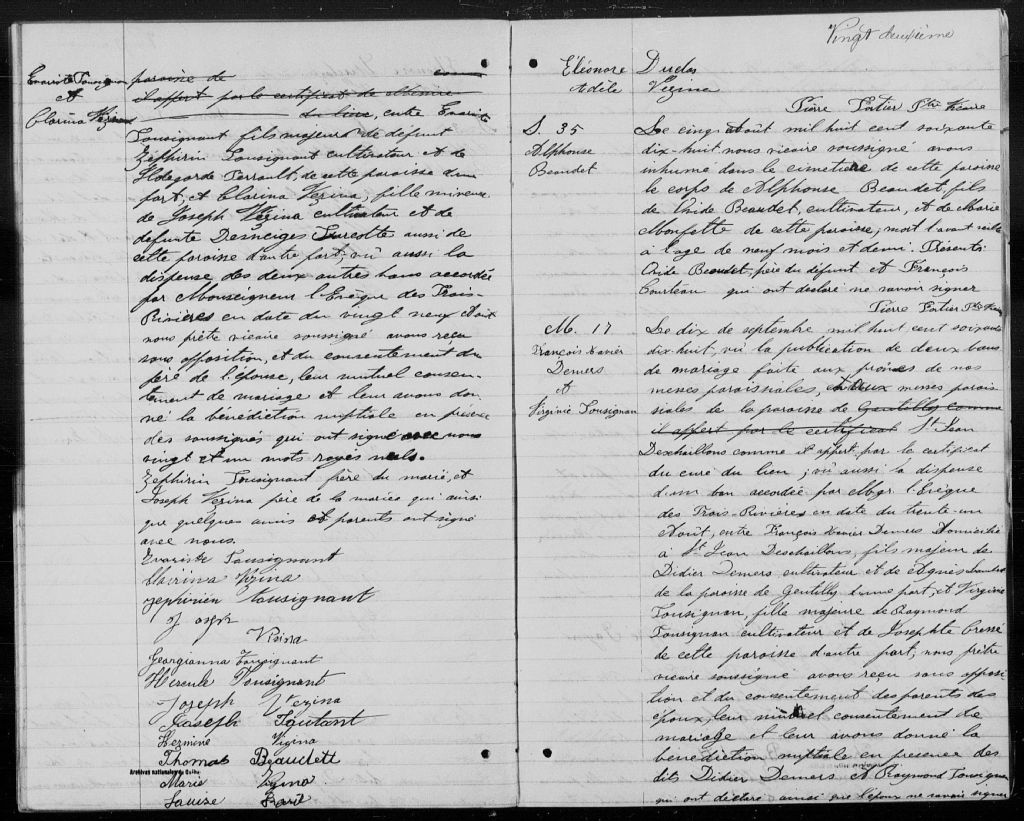 Evariste Tousignan
et
Clarina Vezina
paroisse de
il appert par le certificat de
du lieu, entre Evariste
Tousignant fils majeur de defunt
Zéphirin Tousignant cultivateur et de
Hldegarde Perrault, de cette paroisse d'une
part, et Clarina Vezina, fille mineure
de Joseph Vezina cultivateur et de
defunte Desneiges Turcotte aussi de
cette paroisse d'autre part; vû aussi la
dispense des deux autres bans accordée
par Monseigneur l'Evèque des Trois-
Rivières en date du vingt neuf Août
nous prêtre vicaire soussigné avons reçu
sous opposition, et du consentement du
père de l'épouse, leur mutuel consen-
tement de mariage et leur avons don-
né la bénédiction nuptiale en presence
des soussignés qui ont signé avec nous
vingt et un mots rayés nuls.
Zéphirin Tousignant frère du marié, et
Joseph Vezina père de la mariée qui ainsi
que quelques amis et parents ont signé
avec nous.
Evariste Tousignant
Clarinna Vezina
zephirien tousignant
Joseph
Vesina
Georgianna Tousignant
Hercule Tousignant
Joseph Vezina
Joseph Toutant
Hermine Vezina
Thomas Beaudett
Archives nationales du Québec
Marie Vezina
Louise Baril
Vingt deuxième
Éléonore Duclos
Adèle Vezina
Pierre Fortier Ptre Vicaire
S. 35
Alphonse
Beaudet
Le cinq août mil huit cent soixante
dix-huit nous vicaire soussigné avons
inhumé dans le cimetiere de cette paroisse
le corps de Alphonse Beaudet, fils
de Onide Beaudet, cultivateur, et de Marie
Monfette de cette paroisse, mort l'avant veille
à l'age de neuf mois et demi. Présents
Onide Beaudet, père du défunt et François
Courteau qui ont déclaré ne savoir signer
Pierre Fortier Ptre Vicaire
M. 17
François Xavier
Demers
et
Virginie Tousignan
Le dix de septembre mil huit cent soixante
dix-huit, vû la publication de deux bans
de mariage faite aux prones de nos
messes paroissiales, et aux messes parois
siales de la paroisse de Gentilly comme
il appert par le certificat St Jean
Deschaillons comme et appert par le certificat
du curé du lieu; vû aussi la dispense
d'un ban accordée par Mgr. l'Evèque
des Trois-Rivières en date du trente un
Août, entre François Xavier Demers domicilié
à St Jean Deschaillons, fils majeur de
Didier Demers cultivateur et de Agnès
de la paroisse de Gentilly d'une part, et Virginie
Tousignan, fille majeure de Raymond
Tousignan cultivateur et de Josephte Brasse
de cette paroisse d'autre part, nous prêtre
vicaire soussigné avons reçu sous opposi
tion et du consentement des parents des
époux, leur mutuel consentement de
mariage et leur avons donné la
bénédiction nuptiale en presence des
dits Didier Demers et Raymond Tousignan
qui ont déclaré ainsi que l'époux ne savoir signer